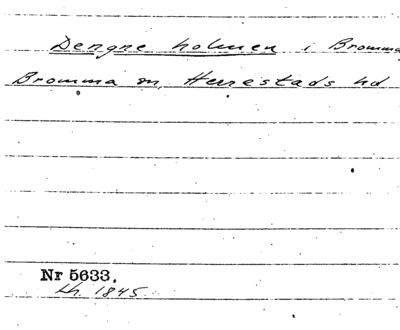 Dengne holmen i Bromma
Bromma sn, Herrestads hd
Nr 5633.
Lh. 1845.